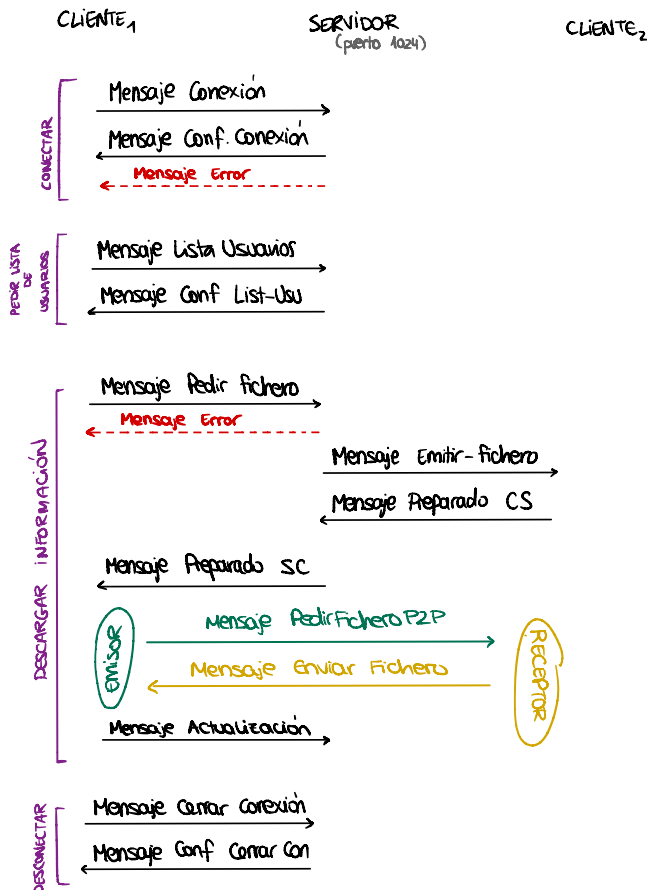 CLIENTE1
SERVIDOR
(puerto 1024)
CLIENTE2
CONECTAR
Mensaje Conexión
Mensaje Conf. Conexión
Mensaje Error
PEDIR LISTA
DE
USUARIOS
Mensaje Lista Usuarios
Mensaje Conf List-Usu
DESCARGAR INFORMACIÓN
Mensaje Pedir fichero
Mensaje Error
Mensaje Emitir-fichero
Mensaje Preparado CS
Mensaje Preparado SC
EMISOR
Mensaje PedirFicheroP2P
Mensaje Enviar Fichero
RECEPTOR
Mensaje Actualización
DESCONECTAR
Mensaje Cerrar Conexión
Mensaje Conf Cerrar Con